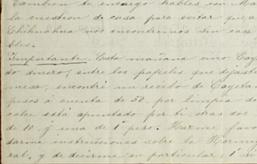 Tambien te encargo hables con Ma
la cuestion de casa para evitar que a
Chihuahua nos encontremos sin casa
bles.
Importante. Esta mañana vino Caye
do dinero, entre los papeles que dejaste
mesa, encontré un recibo de Cayeta
pesos á cuenta de 50. por limpia de
cibo está apuntado por ti otras dos
de 10. y una de 1 peso. Hazme favo
darme instrucciones sobre la Normal
ral, y de decirme en particular, 1º